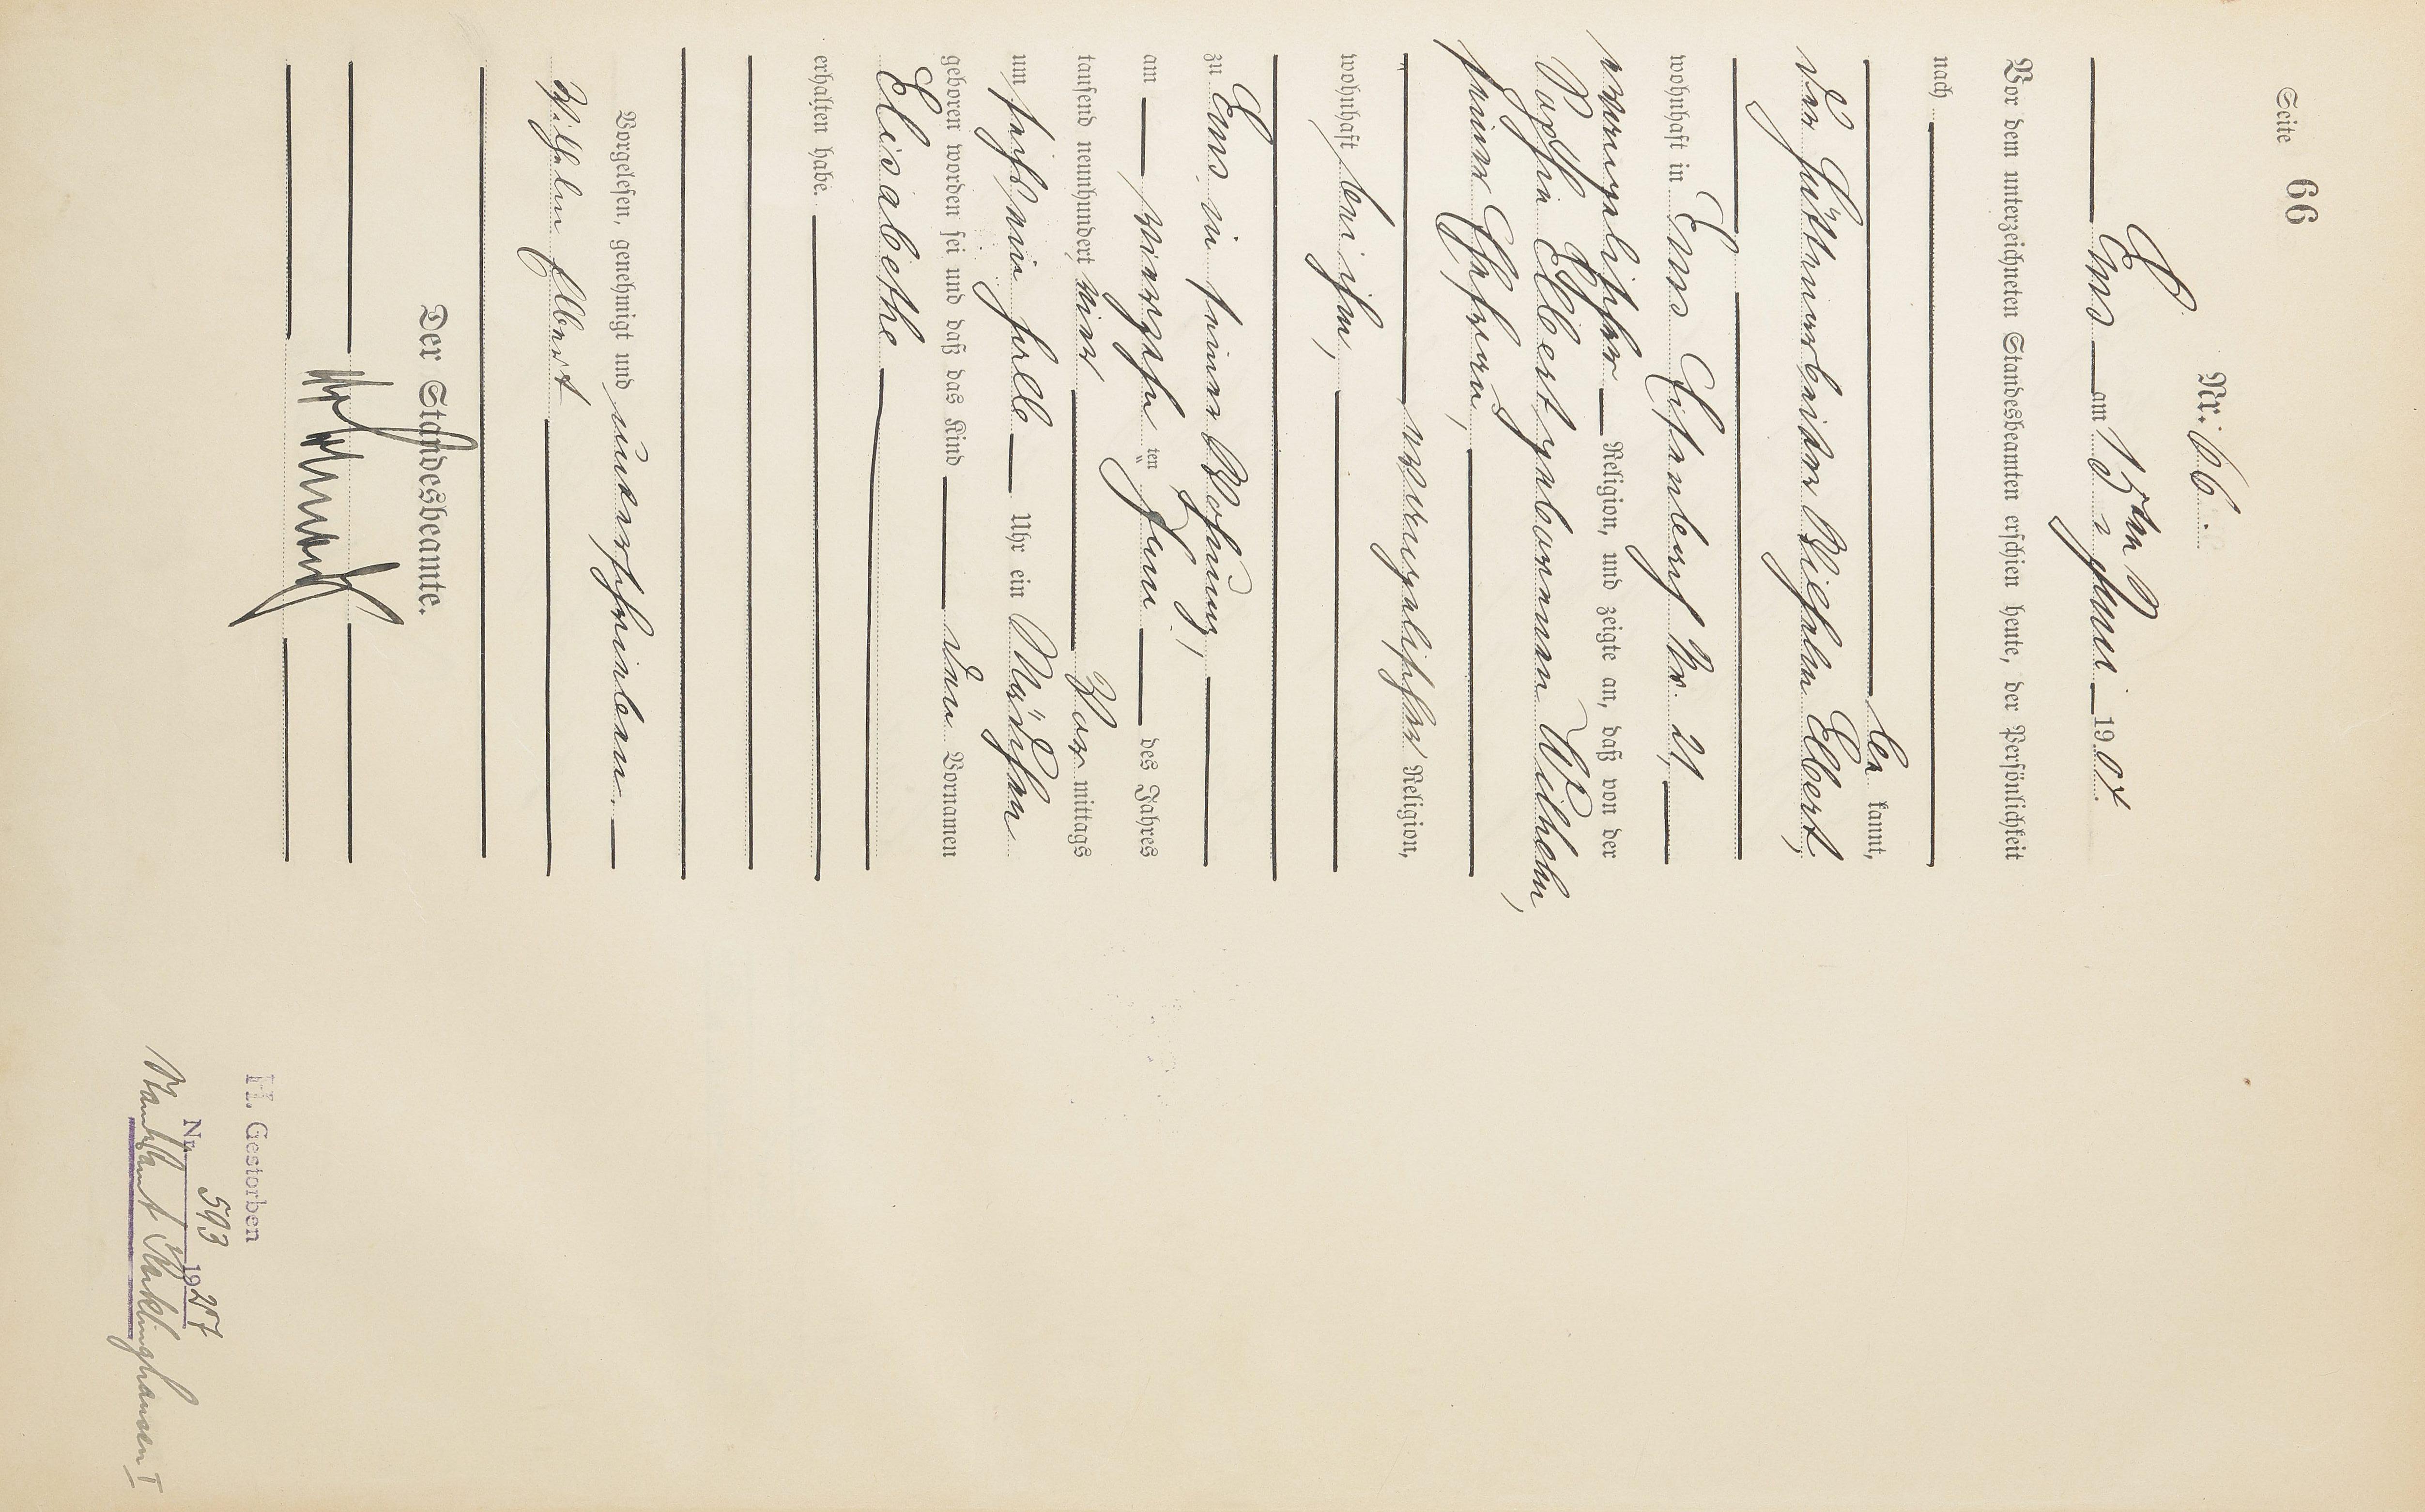 Seite 66
Nr. 66.
Ems am 15ten Juni 1904.
Vor dem unterzeichneten Standesbeamten erschien heute, der Persönlichkeit
nach
be kannt,
der Hüttenarbeiter Wilhelm Elbert,
wohnhaft in Ems Eisenbach Nr. 21,
evangelischer Religion, und zeigte an, daß von der
Sophie Elbert geborenen Wilhelm,
seiner Ehefrau,
evangelischer Religion,
wohnhaft bei ihm,
zu Ems in seiner Wohnung,
am vierzehnten Juni des Jahres
tausend neunhundert vier Vor mittags
um sechs ein halb Uhr ein Mädchen
geboren worden sei und daß das Kind den Vornamen
Elisabethe
erhalten habe.
Vorgelesen, genehmigt und unterschrieben.
Wilhelm Elbert
Der Standesbeamte.
H. Gestorben
Nr. 593 1927
Standesamt Recklinghausen I